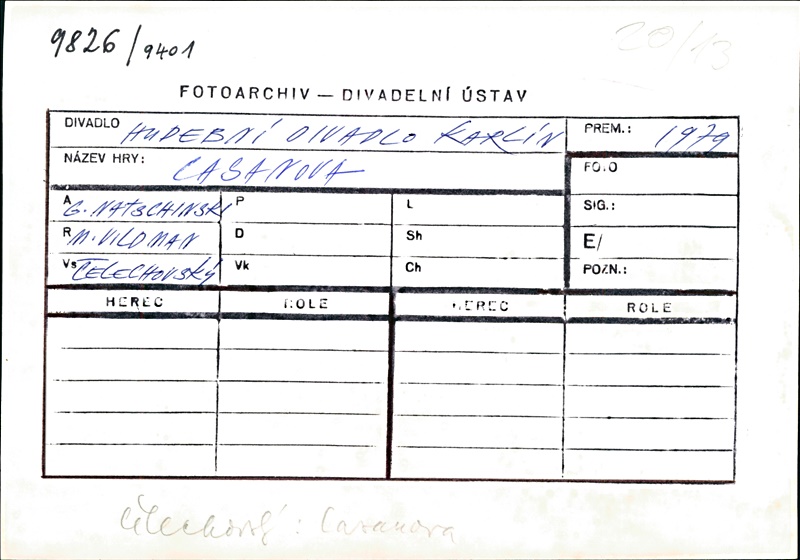 9826/9401
20/13
FOTOARCHIV — DIVADELNÍ ÚSTAV
DIVADLO HUDEBNÍ DIVADLO KARLÍN
PREM.: 1979
NÁZEV HRY: CASANOVA
FOTO
A G. NATSCHINSKI
P
L
SIG.:
R M. VILDMAN
D
Sh
E/
Vs ČELECHOVSKÝ
Vk
Ch
POZN.:
HEREC ROLE HEREC ROLE
: Casanova